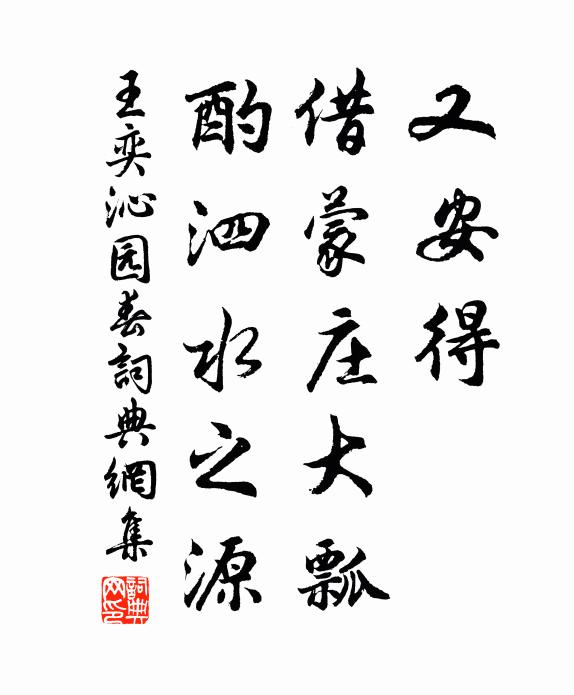 又安得
借蒙庄大瓢
酌泗水之源
王奕沁园春詞典網集
詞典网印